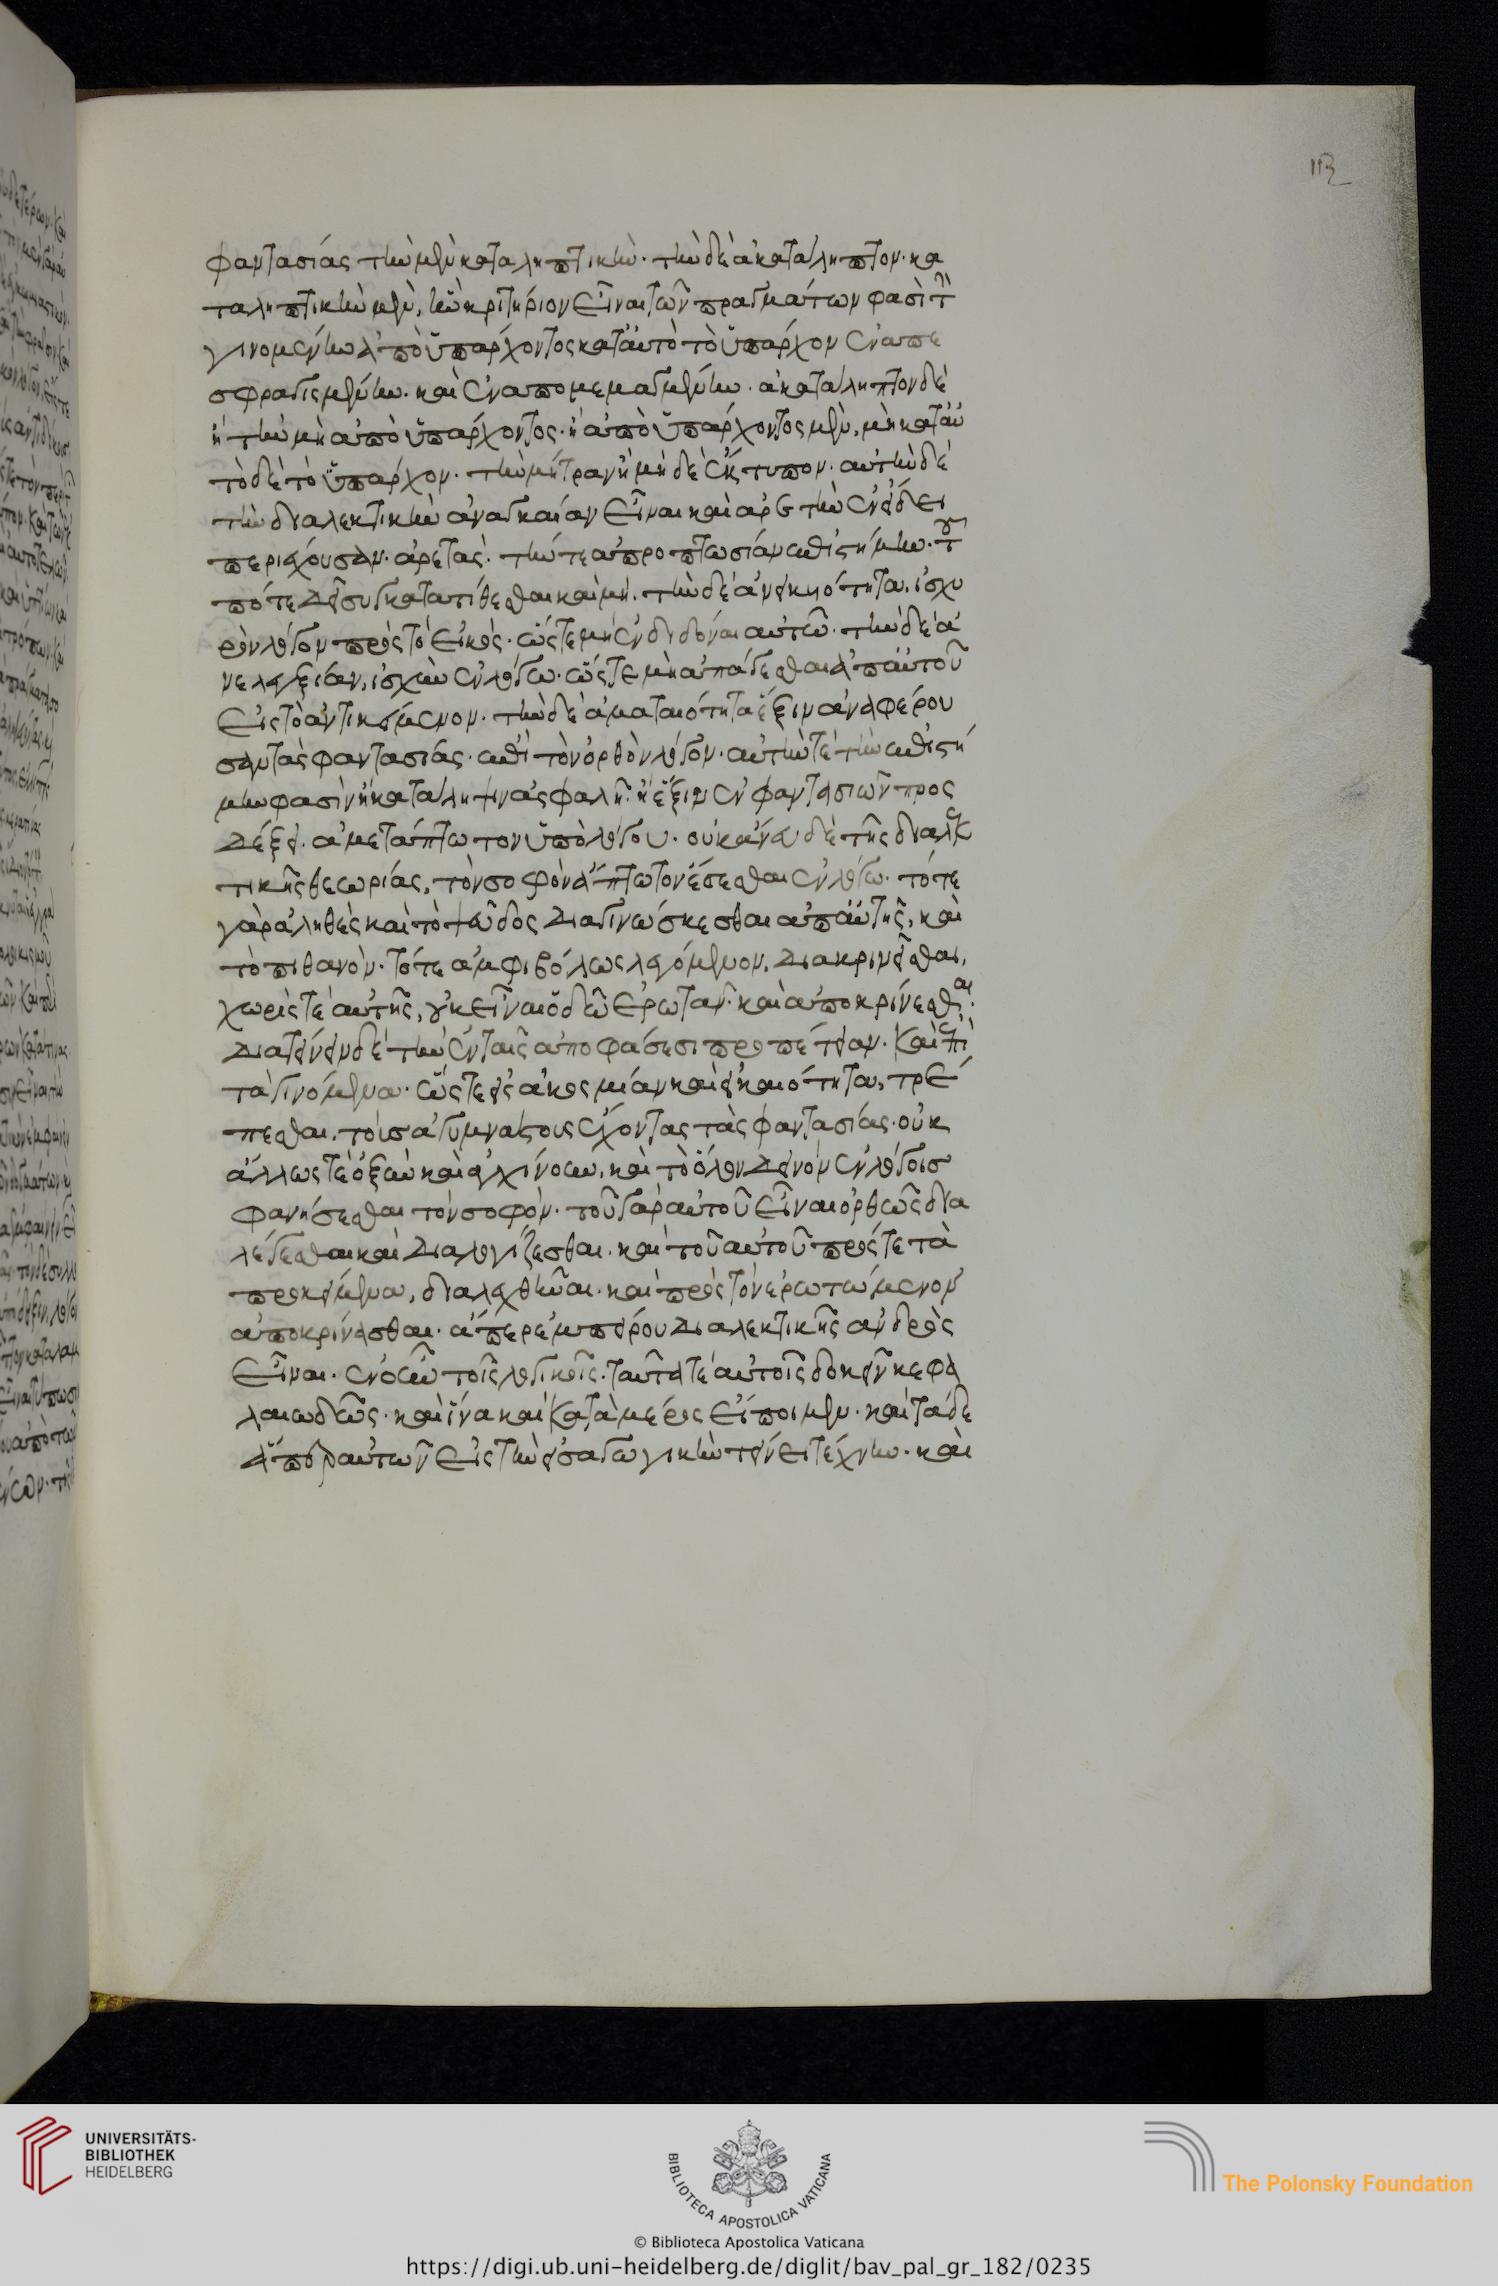 φαντασίας τὴν μὲν καταληπτικήν· τὴν δὲ ἀκατάληπτον· κα
ταληπτικὴν μὲν, ἣν κριτήριον εἶναι τῶν πραγμάτων φασὶ τὴν
γινομένην ἀπὸ ὑπάρχοντος κατ' αὐτὸ τὸ ὑπάρχον ἐναπε
σφραγισμένην· καὶ ἐναπομεμαγμένην· ἀκατάληπτον δὲ
ἢ τὴν μὴ ἀπὸ ὑπάρχοντος· ἢ ἀπὸ ὑπάρχοντος μὲν, μὴ κατ' αὐ
τὸ δὲ τὸ ὑπάρχον· τὴν μὴ τρανῆ μὴ δὲ ἔκτυπον· αὐτὴν δὲ
τὴν διαλεκτικὴν ἀναγκαίαν εἶναι καὶ ἀρετὴν ἐν εἴδει
περιέχουσαν ἀρετάς· τήν τε ἀπροπτωσίαν ἐπιστήμην· τοῦ
πότε δεῖ συγκατατίθεσθαι καὶ μή· τὴν δὲ ἀνεικαιότητα, ἰσχυ
ρὸν λόγον πρὸς τὸ εἰκὸς· ὥστε μὴ ἐνδιδόναι αὐτῶ· τὴν δὲ ἀ
νελεγξίαν, ἰσχὺν ἐν λόγω· ὥστε μὴ ἀπάγεσθαι ἀπ' αὐτοῦ
εἰς τὸ ἀντικείμενον· τὴν δὲ ἀματαιότητα ἕξιν ἀναφέρου
σαν τὰς φαντασίας· ἐπὶ τὸν ὀρθὸν λόγον· αὐτήν τε τὴν ἐπιστή
μην φασὶν ἢ κατάληψιν ἀσφαλῆ· ἢ ἕξιν ἐν φαντασιῶν προς
δέξει ἀμετάπτωτον ὑπὸ λόγου· οὐκ ἄνευ δὲ τῆς διαλεκ
τικῆς θεωρίας, τὸν σοφὸν ἄπτωτον ἔσεσθαι ἐν λόγω· τό τε
γὰρ ἀληθὲς καὶ τὸ ψεῦδος διαγινώσκεσθαι ἀπ' αὐτῆς, καὶ
τὸ πιθανὸν· τό τε ἀμφιβόλως λεγόμενον, διακρινεῖσθαι,
χωρίς τε αὐτῆς, οὐκ εἶναι ὁδῶ ἐρωτᾶν καὶ ἀποκρίνεσθαι·
διατείνειν δὲ τὴν ἐν ταῖς ἀποφάσεσι προπέτειαν· καὶ ἐπὶ
τὰ γινόμενα· ὥστε εἰς ἀκοσμίαν καὶ εἰκαιότητα, τρέ
πεσθαι τοὺς ἀγυμνάστους ἔχοντας τὰς φαντασίας· οὐκ
ἄλλως τε ὀξὺν καὶ ἀγχίνουν, καὶ τὸ ὅλον δεινὸν ἐν λόγοις
φανήσεσθαι τὸν σοφὸν· τοῦ γὰρ αὐτοῦ εἶναι ὀρθῶς δια
λέγεσθαι καὶ διαλογίζεσθαι· καὶ τοῦ αὐτοῦ πρός τε τὰ
προκείμενα, διαλεχθῆναι· καὶ πρὸς τὸν ἐρωτώμενον
ἀποκρίνασθαι· ἅπερ ἐμπείρου διαλεκτικῆς ἀνδρὸς
εἶναι· ἐν οὖν τοῖς λογικοῖς· ταῦτά τε αὐτοῖς δοκεῖν κεφα
λαιωδῶς· καὶ ἵνα καὶ κατὰ μέρος εἴποιμεν· καὶ τάδε
ἅπερ αὐτῶν εἰς τὴν εἰσαγωγικὴν τείνει τέχνην· καὶ
UNIVERSITÄTS-
BIBLIOTHEK
HEIDELBERG
BIBLIOTECA APOSTOLICA VATICANA
© Biblioteca Apostolica Vaticana
The Polonsky Foundation
https://digi.ub.uni-heidelberg.de/diglit/bav_pal_gr_182/0235